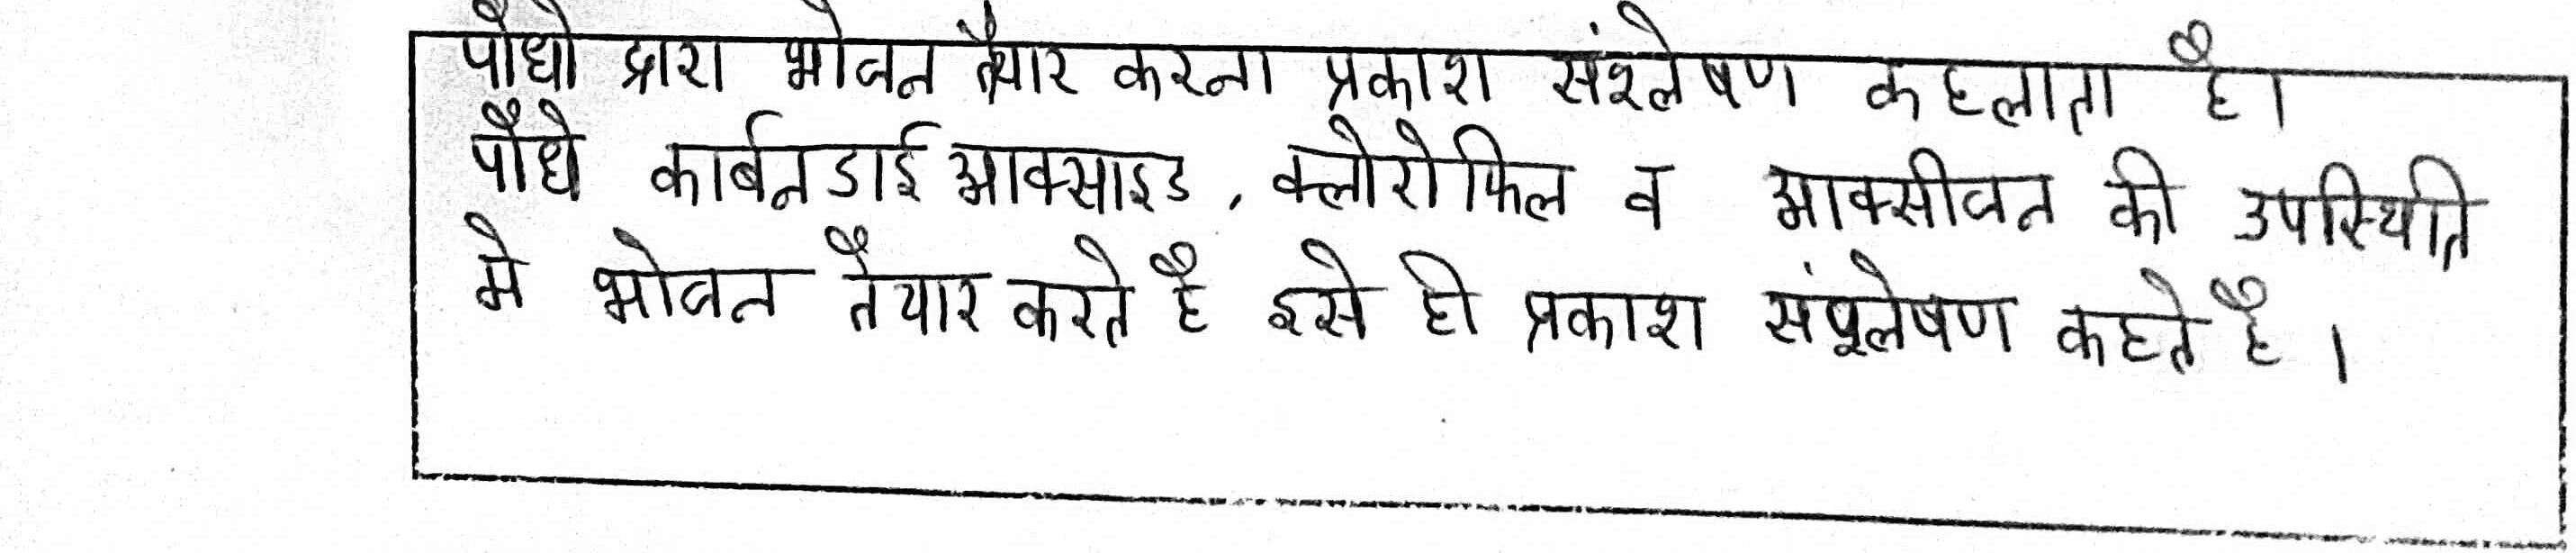 पौधो द्वारा भोजन तैयार करना प्रकाश संश्लेषण कहलाता है।
पौधे कार्बनडाई आक्साइड, क्लोरोफिल व आक्सीजन की उपस्थिति
मे भोजन तैयार करते है इसे ही प्रकाश संश्लेषण कहते है।